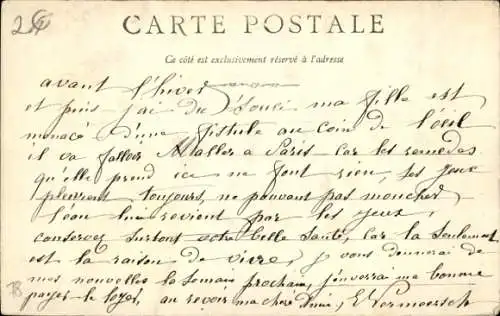 CARTE POSTALE
Ce côté est exclusivement réservé à l'adresse
avant l'hiver
et puis j'ai du souci ma fille est
menacé d'une fistule au coin de l'oeil
il va falloir aller a Paris car les remedes
qu'elle prend ici ne font rien, ses yeux
pleurent toujours, ne pouvant pas moucher
l'eau lui revient par les yeux,
conservez surtout votre belle santé, car là seulement
est la raison de vivre, je vous donnerai de
mes nouvelles la semaine prochaine, j'enverrai ma bonne
payer le loyer, au revoir ma chère amie, E Vermeersch